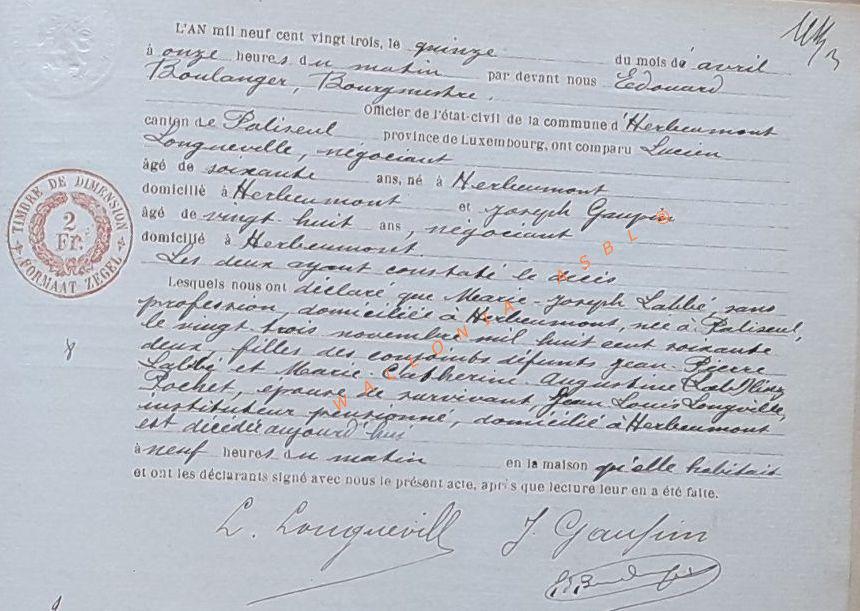 L'AN mil neuf cent vingt trois, le quinze du mois de avril
à onze heures du matin par devant nous Edouard
Boulanger, Bourgmestre.
Officier de l'état-civil de la commune d'Herbeumont
canton de Paliseul province de Luxembourg, ont comparu Lucien
Longueville, négociant
âgé de soixante ans, né à Herbeumont
domicilé à Herbeumont et Joseph Gaupin
âgé de vingt huit ans, négociant
domicilé à Herbeumont
Les deux ayant constaté le décès
Lesquels nous ont déclaré que Marie-Joseph Labbé, sans
profession, domiciliée à Herbeumont, née à Paliseul,
le vingt trois novembre mil huit cent soixante
deux filles des conjoints défunts Jean-Pierre
Labbé et Marie-Catherine-Augustine
Pochet, épouse de survivant, Jean Louis Longville,
instituteur pensionné, domicilié à Herbeumont
est décédée aujourd'hui
à neuf heures du matin en la maison qu'elle habitait
et ont les déclarants signé avec nous le présent acte, après que lecture leur en a été faite.
L. Longuevill J. Gaupin
TIMBRE DE DIMENSION
2
Fr.
FORMAAT ZEGEL
WALLONIA ASBL ©